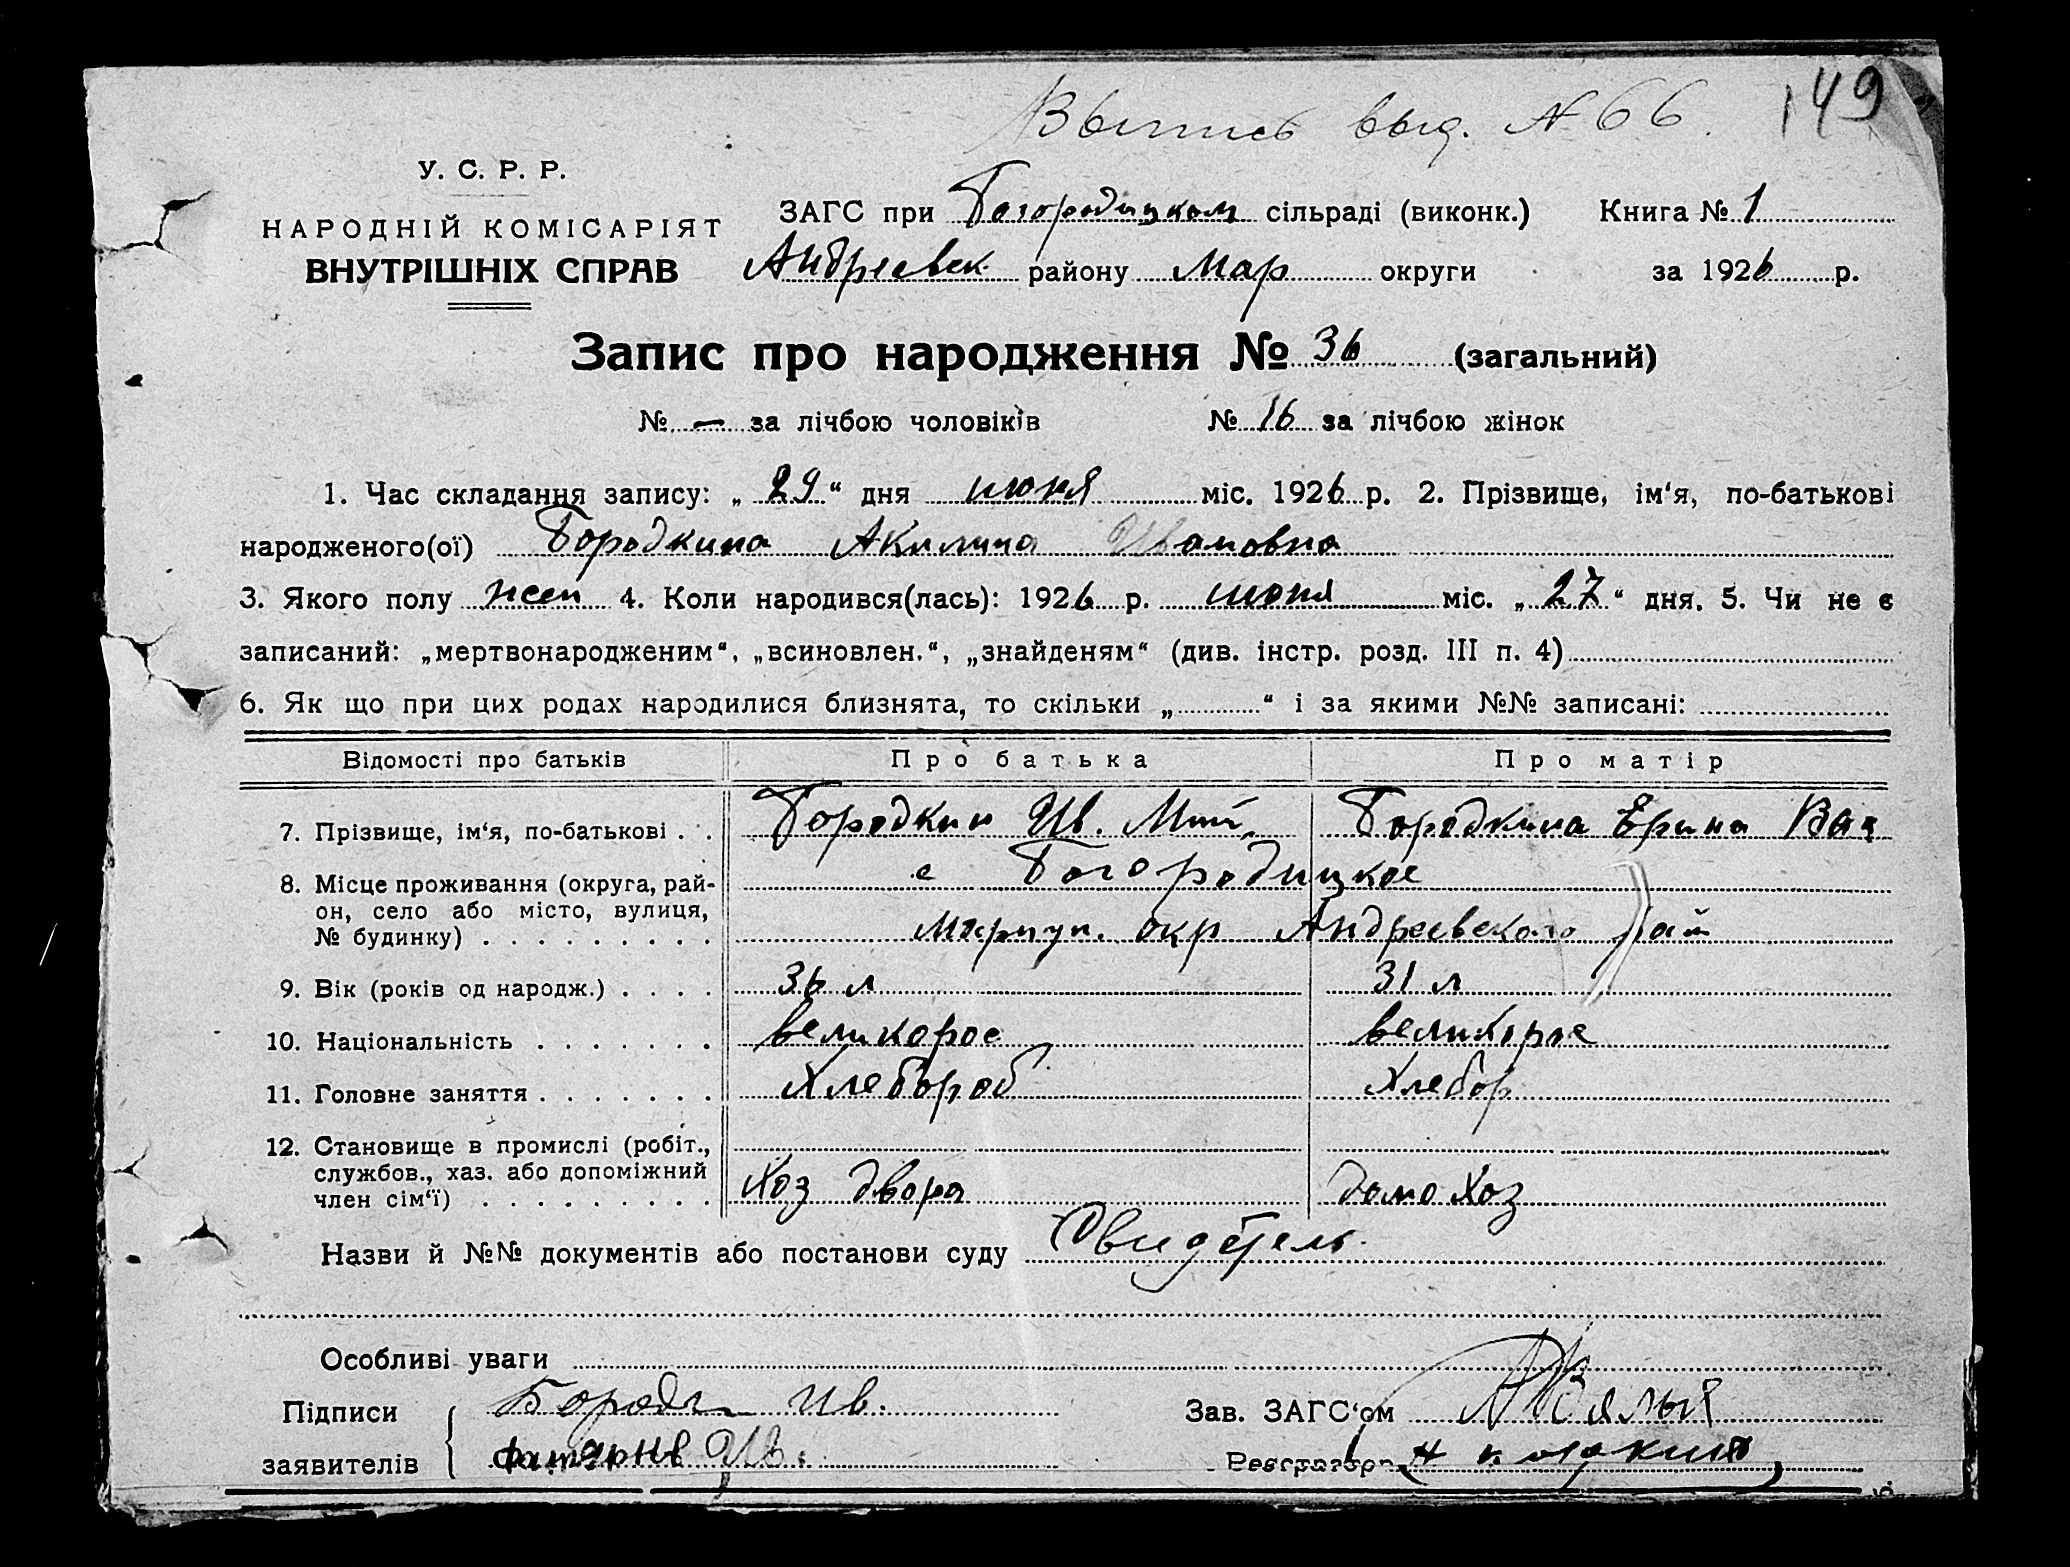 Выпись выд. № 66. 149
У. С. Р. Р.
НАРОДНІЙ КОМІСАРІЯТ
ВНУТРІШНІХ СПРАВ
ЗАГС при Богородицком сільраді (виконк.) Книга № 1
Андреевск. району Мар округи за 1926 р.
Запис про народження № 36 (загальний)
№ — за лічбою чоловіків № 16 за лічбою жінок
1. Час складання запису: „ 29 “ дня июня міс. 1926 р. 2. Прізвище, ім‘я, по-батькові
народженого(ої) Бородкина Акилина Ивановна
3. Якого полу жен 4. Коли народився(лась): 1926 р. июня міс. „ 27 “ дня. 5. Чи не є
записаний: „мертвонародженим“, „всиновлен.“, „знайденям“ (див. інстр. розд. III п. 4)
6. Як що при цих родах народилися близнята, то скільки „ “ і за якими №№ записані:
Відомості про батьків Про батька Про матір
7. Прізвище, ім‘я, по-батькові . . Бородкин Ив. Мит. Бородкина Ерина Вас
8. Місце проживання (округа, рай- с Богородицкое
он, село або місто, вулиця,
№ будинку) . . . . . . . . . Мариуп. окр Андреевского рай
9. Вік (років од народж.) . . . . 36 л 31 л
10. Національність . . . . . . . великорос великорос
11. Головне заняття . . . . . . . Хлебороб Хлебор
12. Становище в промислі (робіт.,
службов., хаз. або допоміжний
член сім‘ї) . . . . . . . . . Хоз двора домо Хоз
Назви й №№ документів або постанови суду Свидетель.
Особливі уваги
Підписи Ив. Зав. ЗАГС‘ом
заявителів Ив. Реєстратор